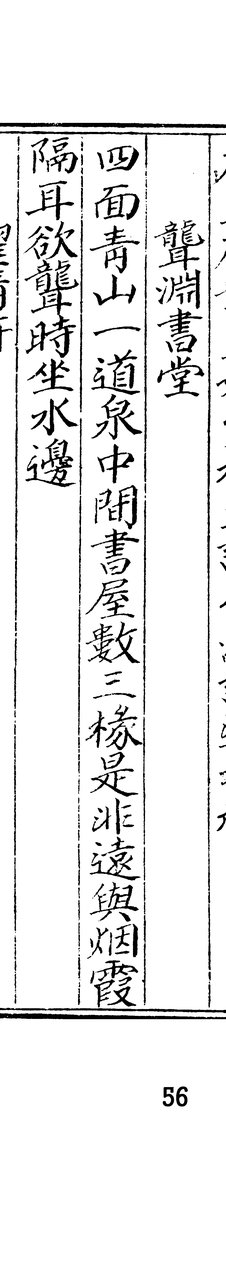 聾淵書堂
四面青山一道泉中間書屋數三椽是非遠與烟霞
隔耳欲聾時坐水邊
56